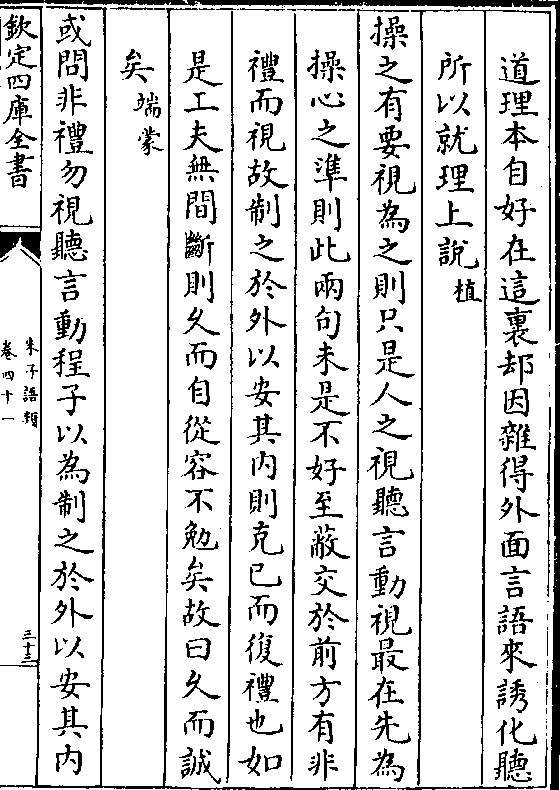 道理本自好在這裏却因雜得外面言語來誘化聽
所以就理上說植
操之有要視為之則只是人之視聽言動視最在先為
操心之準則此兩句未是不好至蔽交於前方有非
禮而視故制之於外以安其内則克已而復禮也如
是工夫無間斷則久而自從容不勉矣故曰久而誠
矣端蒙
或問非禮勿視聽言動程子以為制之於外以安其内
欽定四庫全書
朱子語類
卷四十一
三十三